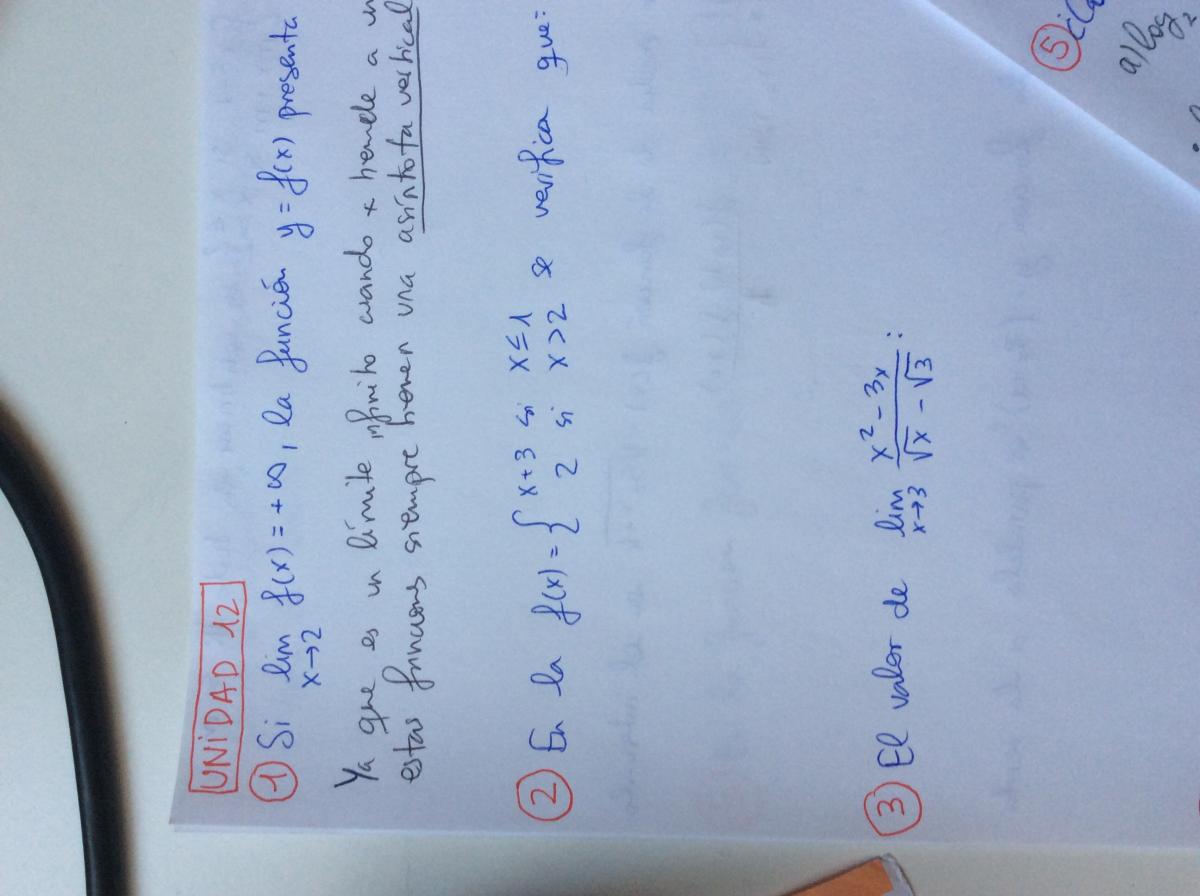 UNIDAD 12
① Si lim x→2 f(x) = +∞, la función y = f(x) presenta
Ya que es un límite infinito cuando x tiende a un
estas funciones siempre tienen una asíntota vertical
② En la f(x) = { x+3 si x ≤ 1
2 si x > 2 se verifica que:
③ El valor de lim x→3 (x² - 3x)/(√x - √3) :
⑤
a) log₂